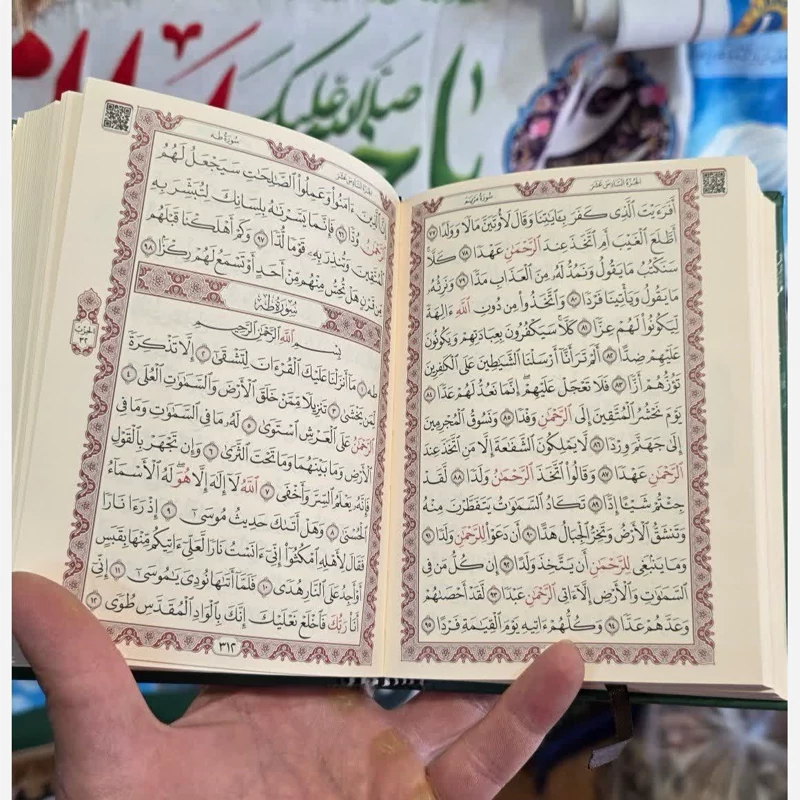 صلى الله عليك
يا
الجزء السادس عشر
سورة مريم
أَفَرَءَيْتَ ٱلَّذِى كَفَرَ بِـَٔايَـٰتِنَا وَقَالَ لَأُوتَيَنَّ مَالًا وَوَلَدًا ٧٧
أَطَّلَعَ ٱلْغَيْبَ أَمِ ٱتَّخَذَ عِندَ ٱلرَّحْمَـٰنِ عَهْدًا ٧٨ كَلَّا
سَنَكْتُبُ مَا يَقُولُ وَنَمُدُّ لَهُۥ مِنَ ٱلْعَذَابِ مَدًّا ٧٩ وَنَرِثُهُۥ
مَا يَقُولُ وَيَأْتِينَا فَرْدًا ٨٠ وَٱتَّخَذُوا۟ مِن دُونِ ٱللَّهِ ءَالِهَةً
لِّيَكُونُوا۟ لَهُمْ عِزًّا ٨١ كَلَّا سَيَكْفُرُونَ بِعِبَادَتِهِمْ وَيَكُونُونَ
عَلَيْهِمْ ضِدًّا ٨٢ أَلَمْ تَرَ أَنَّآ أَرْسَلْنَا ٱلشَّيَـٰطِينَ عَلَى ٱلْكَـٰفِرِينَ
تَؤُزُّهُمْ أَزًّا ٨٣ فَلَا تَعْجَلْ عَلَيْهِمْ إِنَّمَا نَعُدُّ لَهُمْ عَدًّا ٨٤
يَوْمَ نَحْشُرُ ٱلْمُتَّقِينَ إِلَى ٱلرَّحْمَـٰنِ وَفْدًا ٨٥ وَنَسُوقُ ٱلْمُجْرِمِينَ
إِلَىٰ جَهَنَّمَ وِرْدًا ٨٦ لَّا يَمْلِكُونَ ٱلشَّفَـٰعَةَ إِلَّا مَنِ ٱتَّخَذَ عِندَ
ٱلرَّحْمَـٰنِ عَهْدًا ٨٧ وَقَالُوا۟ ٱتَّخَذَ ٱلرَّحْمَـٰنُ وَلَدًا ٨٨ لَّقَدْ
جِئْتُمْ شَيْـًٔا إِدًّا ٨٩ تَكَادُ ٱلسَّمَـٰوَٰتُ يَتَفَطَّرْنَ مِنْهُ
وَتَنشَقُّ ٱلْأَرْضُ وَتَخِرُّ ٱلْجِبَالُ هَدًّا ٩٠ أَن دَعَوْا۟ لِلرَّحْمَـٰنِ وَلَدًا ٩١
وَمَا يَنۢبَغِى لِلرَّحْمَـٰنِ أَن يَتَّخِذَ وَلَدًا ٩٢ إِن كُلُّ مَن فِى
ٱلسَّمَـٰوَٰتِ وَٱلْأَرْضِ إِلَّآ ءَاتِى ٱلرَّحْمَـٰنِ عَبْدًا ٩٣ لَّقَدْ أَحْصَىٰهُمْ
وَعَدَّهُمْ عَدًّا ٩٤ وَكُلُّهُمْ ءَاتِيهِ يَوْمَ ٱلْقِيَـٰمَةِ فَرْدًا ٩٥
الجزء السادس عشر
سورة طه
إِنَّ ٱلَّذِينَ ءَامَنُوا۟ وَعَمِلُوا۟ ٱلصَّـٰلِحَـٰتِ سَيَجْعَلُ لَهُمُ
ٱلرَّحْمَـٰنُ وُدًّا ٩٦ فَإِنَّمَا يَسَّرْنَـٰهُ بِلِسَانِكَ لِتُبَشِّرَ بِهِ
ٱلْمُتَّقِينَ وَتُنذِرَ بِهِۦ قَوْمًا لُّدًّا ٩٧ وَكَمْ أَهْلَكْنَا قَبْلَهُم
مِّن قَرْنٍ هَلْ تُحِسُّ مِنْهُم مِّنْ أَحَدٍ أَوْ تَسْمَعُ لَهُمْ رِكْزًۢا ٩٨
سُورَةُ طه
بِسْمِ ٱللَّهِ ٱلرَّحْمَـٰنِ ٱلرَّحِيمِ
طه ١ مَآ أَنزَلْنَا عَلَيْكَ ٱلْقُرْءَانَ لِتَشْقَىٰٓ ٢ إِلَّا تَذْكِرَةً
لِّمَن يَخْشَىٰ ٣ تَنزِيلًا مِّمَّنْ خَلَقَ ٱلْأَرْضَ وَٱلسَّمَـٰوَٰتِ ٱلْعُلَى ٤
ٱلرَّحْمَـٰنُ عَلَى ٱلْعَرْشِ ٱسْتَوَىٰ ٥ لَهُۥ مَا فِى ٱلسَّمَـٰوَٰتِ وَمَا فِى
ٱلْأَرْضِ وَمَا بَيْنَهُمَا وَمَا تَحْتَ ٱلثَّرَىٰ ٦ وَإِن تَجْهَرْ بِٱلْقَوْلِ
فَإِنَّهُۥ يَعْلَمُ ٱلسِّرَّ وَأَخْفَى ٧ ٱللَّهُ لَآ إِلَـٰهَ إِلَّا هُوَ لَهُ ٱلْأَسْمَآءُ
ٱلْحُسْنَىٰ ٨ وَهَلْ أَتَىٰكَ حَدِيثُ مُوسَىٰٓ ٩ إِذْ رَءَا نَارًا
فَقَالَ لِأَهْلِهِ ٱمْكُثُوٓا۟ إِنِّىٓ ءَانَسْتُ نَارًا لَّعَلِّىٓ ءَاتِيكُم مِّنْهَا بِقَبَسٍ
أَوْ أَجِدُ عَلَى ٱلنَّارِ هُدًى ١٠ فَلَمَّآ أَتَىٰهَا نُودِىَ يَـٰمُوسَىٰٓ ١١ إِنِّىٓ
أَنَا۠ رَبُّكَ فَٱخْلَعْ نَعْلَيْكَ إِنَّكَ بِٱلْوَادِ ٱلْمُقَدَّسِ طُوًى ١٢
الحزب
٣٢
٣١٢